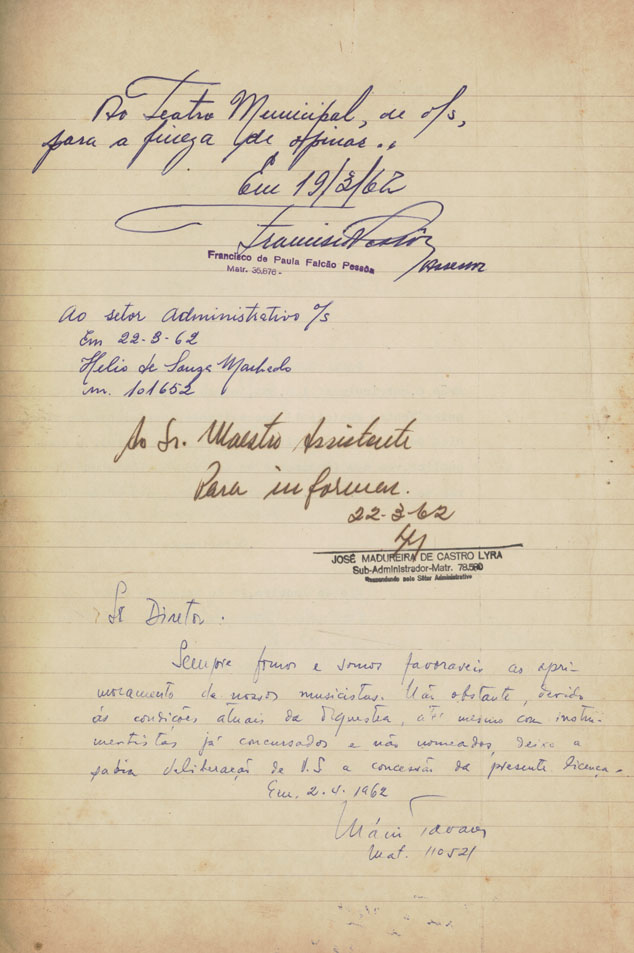 Ao Teatro Municipal, de o/s,
para a fineza de opinar..
Em 19/3/62
Francisco Pessôa
Assessor
Francisco de Paula Falcão Pessôa
Matr. 35.676 -
Ao setor Administrativo o/s
Em 22-3-62
Helio de Souza Machado
m. 101652
Ao Sr. Maestro Assistente
Para informar.
22-3-62
JOSÉ MADUREIRA DE CASTRO LYRA
Sub-Administrador-Matr. 78.580
Respondendo pelo Setor Administrativo
Sr Diretor.
Sempre fomos e somos favoraveis ao apri-
moramento de nossos musicistas. Não obstante, devido
às condições atuais da Orquestra, até mesmo com instru-
mentistas já concursados e não nomeados, deixo a
sabia deliberação de V.S a concessão da presente licença-.
Em, 2.5.1962
Mário Tavares
Mat. 110521